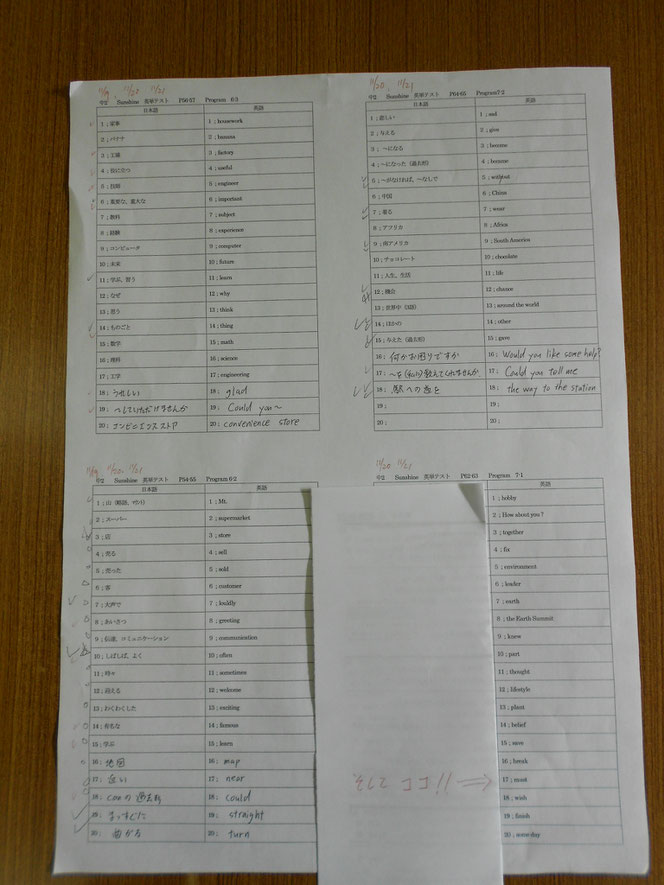 11/19, 11/20 11/21
中2 Sunshine 英単テスト P56-57 Program 6-3
日本語 英語
1 ; 家事 1 ; housework
2 ; バナナ 2 ; banana
3 ; 工場 3 ; factory
4 ; 役に立つ 4 ; useful
5 ; 技師 5 ; engineer
6 ; 重要な、重大な 6 ; important
7 ; 教科 7 ; subject
8 ; 経験 8 ; experience
9 ; コンピュータ 9 ; computer
10 ; 未来 10 ; future
11 ; 学ぶ、習う 11 ; learn
12 ; なぜ 12 ; why
13 ; 思う 13 ; think
14 ; ものごと 14 ; thing
15 ; 数学 15 ; math
16 ; 理科 16 ; science
17 ; 工学 17 ; engineering
18 ; うれしい 18 ; glad
19 ; 〜していただけませんか 19 ; Could you〜
20 ; コンビニエンスストア 20 ; convenience store
11/20, 11/21
中2 Sunshine 英単テスト P64-65 Program7-2
日本語 英語
1 ; 悲しい 1 ; sad
2 ; 与える 2 ; give
3 ; 〜になる 3 ; become
4 ; 〜になった（過去形） 4 ; became
5 ; 〜がなければ、〜なしで 5 ; without
6 ; 中国 6 ; China
7 ; 着る 7 ; wear
8 ; アフリカ 8 ; Africa
9 ; 南アメリカ 9 ; South America
10 ; チョコレート 10 ; chocolate
11 ; 人生、生活 11 ; life
12 ; 機会 12 ; chance
13 ; 世界中（3語） 13 ; around the world
14 ; ほかの 14 ; other
15 ; 与えた（過去形） 15 ; gave
16 ; 何かお困りですか 16 ; Would you like some help?
17 ; 〜を(私に)教えてくれませんか 17 ; Could you tell me
18 ; 駅への道を 18 ; the way to the station
19 ; 19 ;
20 ; 20 ;
11/19 11/20, 11/21
中2 Sunshine 英単テスト P54-55 Program 6-2
日本語 英語
1 ; 山（略語、マウント） 1 ; Mt.
2 ; スーパー 2 ; supermarket
3 ; 店 3 ; store
4 ; 売る 4 ; sell
5 ; 売った 5 ; sold
6 ; 客 6 ; customer
7 ; 大声で 7 ; loudly
8 ; あいさつ 8 ; greeting
9 ; 伝達、コミュニケーション 9 ; communication
10 ; しばしば、よく 10 ; often
11 ; 時々 11 ; sometimes
12 ; 迎える 12 ; welcome
13 ; わくわくした 13 ; exciting
14 ; 有名な 14 ; famous
15 ; 学ぶ 15 ; learn
16 ; 地図 16 ; map
17 ; 近い 17 ; near
18 ; canの過去形 18 ; could
19 ; まっすぐに 19 ; straight
20 ; 曲がる 20 ; turn
11/20 11/21
中2 Sunshine 英単テスト P62-63 Program 7-1
英語
1 ; hobby
2 ; How about you ?
3 ; together
4 ; fix
5 ; environment
6 ; leader
7 ; earth
8 ; the Earth Summit
9 ; knew
10 ; part
11 ; thought
12 ; lifestyle
13 ; plant
14 ; belief
15 ; save
16 ; break
17 ; must
18 ; wish
19 ; finish
20 ; some day
そして ココ!! ⇒